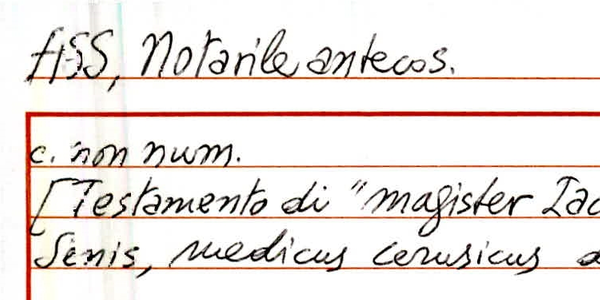 ASS, Notarile antecos.
c. non num.
[Testamento di "magister Iac
Senis, medicus cerusicus